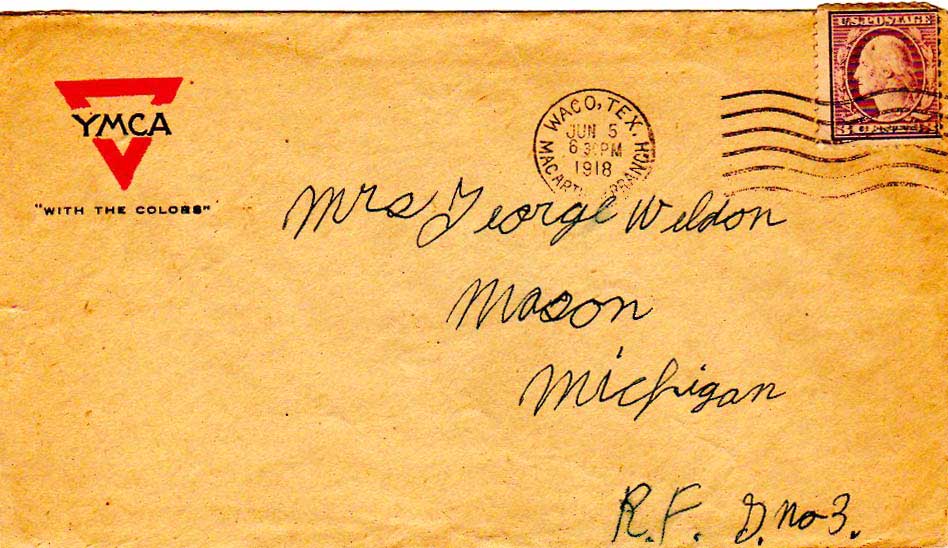 YMCA
"WITH THE COLORS"
WACO, TEX.
JUN 5
6 30 PM
1918
U.S. POSTAGE
3 CENTS 3
Mrs George Weldon
Mason
Michigan
R.F. D. no 3.